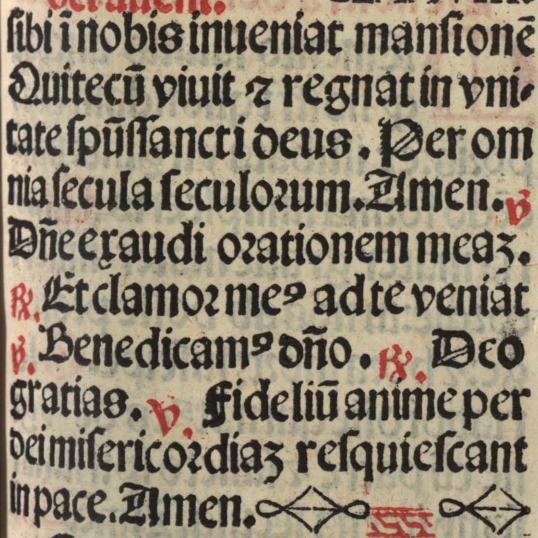 sibi ī nobis inueniat mansionē
Qui tecū viuit ⁊ regnat in vni-
tate spūssancti deus. Per om
nia secula seculorum. Amen. ℣
Dn̄e exaudi orationem meaꝫ.
℟. Et clamor meꝰ ad te veniat
℣. Benedicamꝰ dn̄o. ℟. Deo
gratias. ℣. Fideliū anime per
dei misericordiaꝫ resquiescant
in pace. Amen.